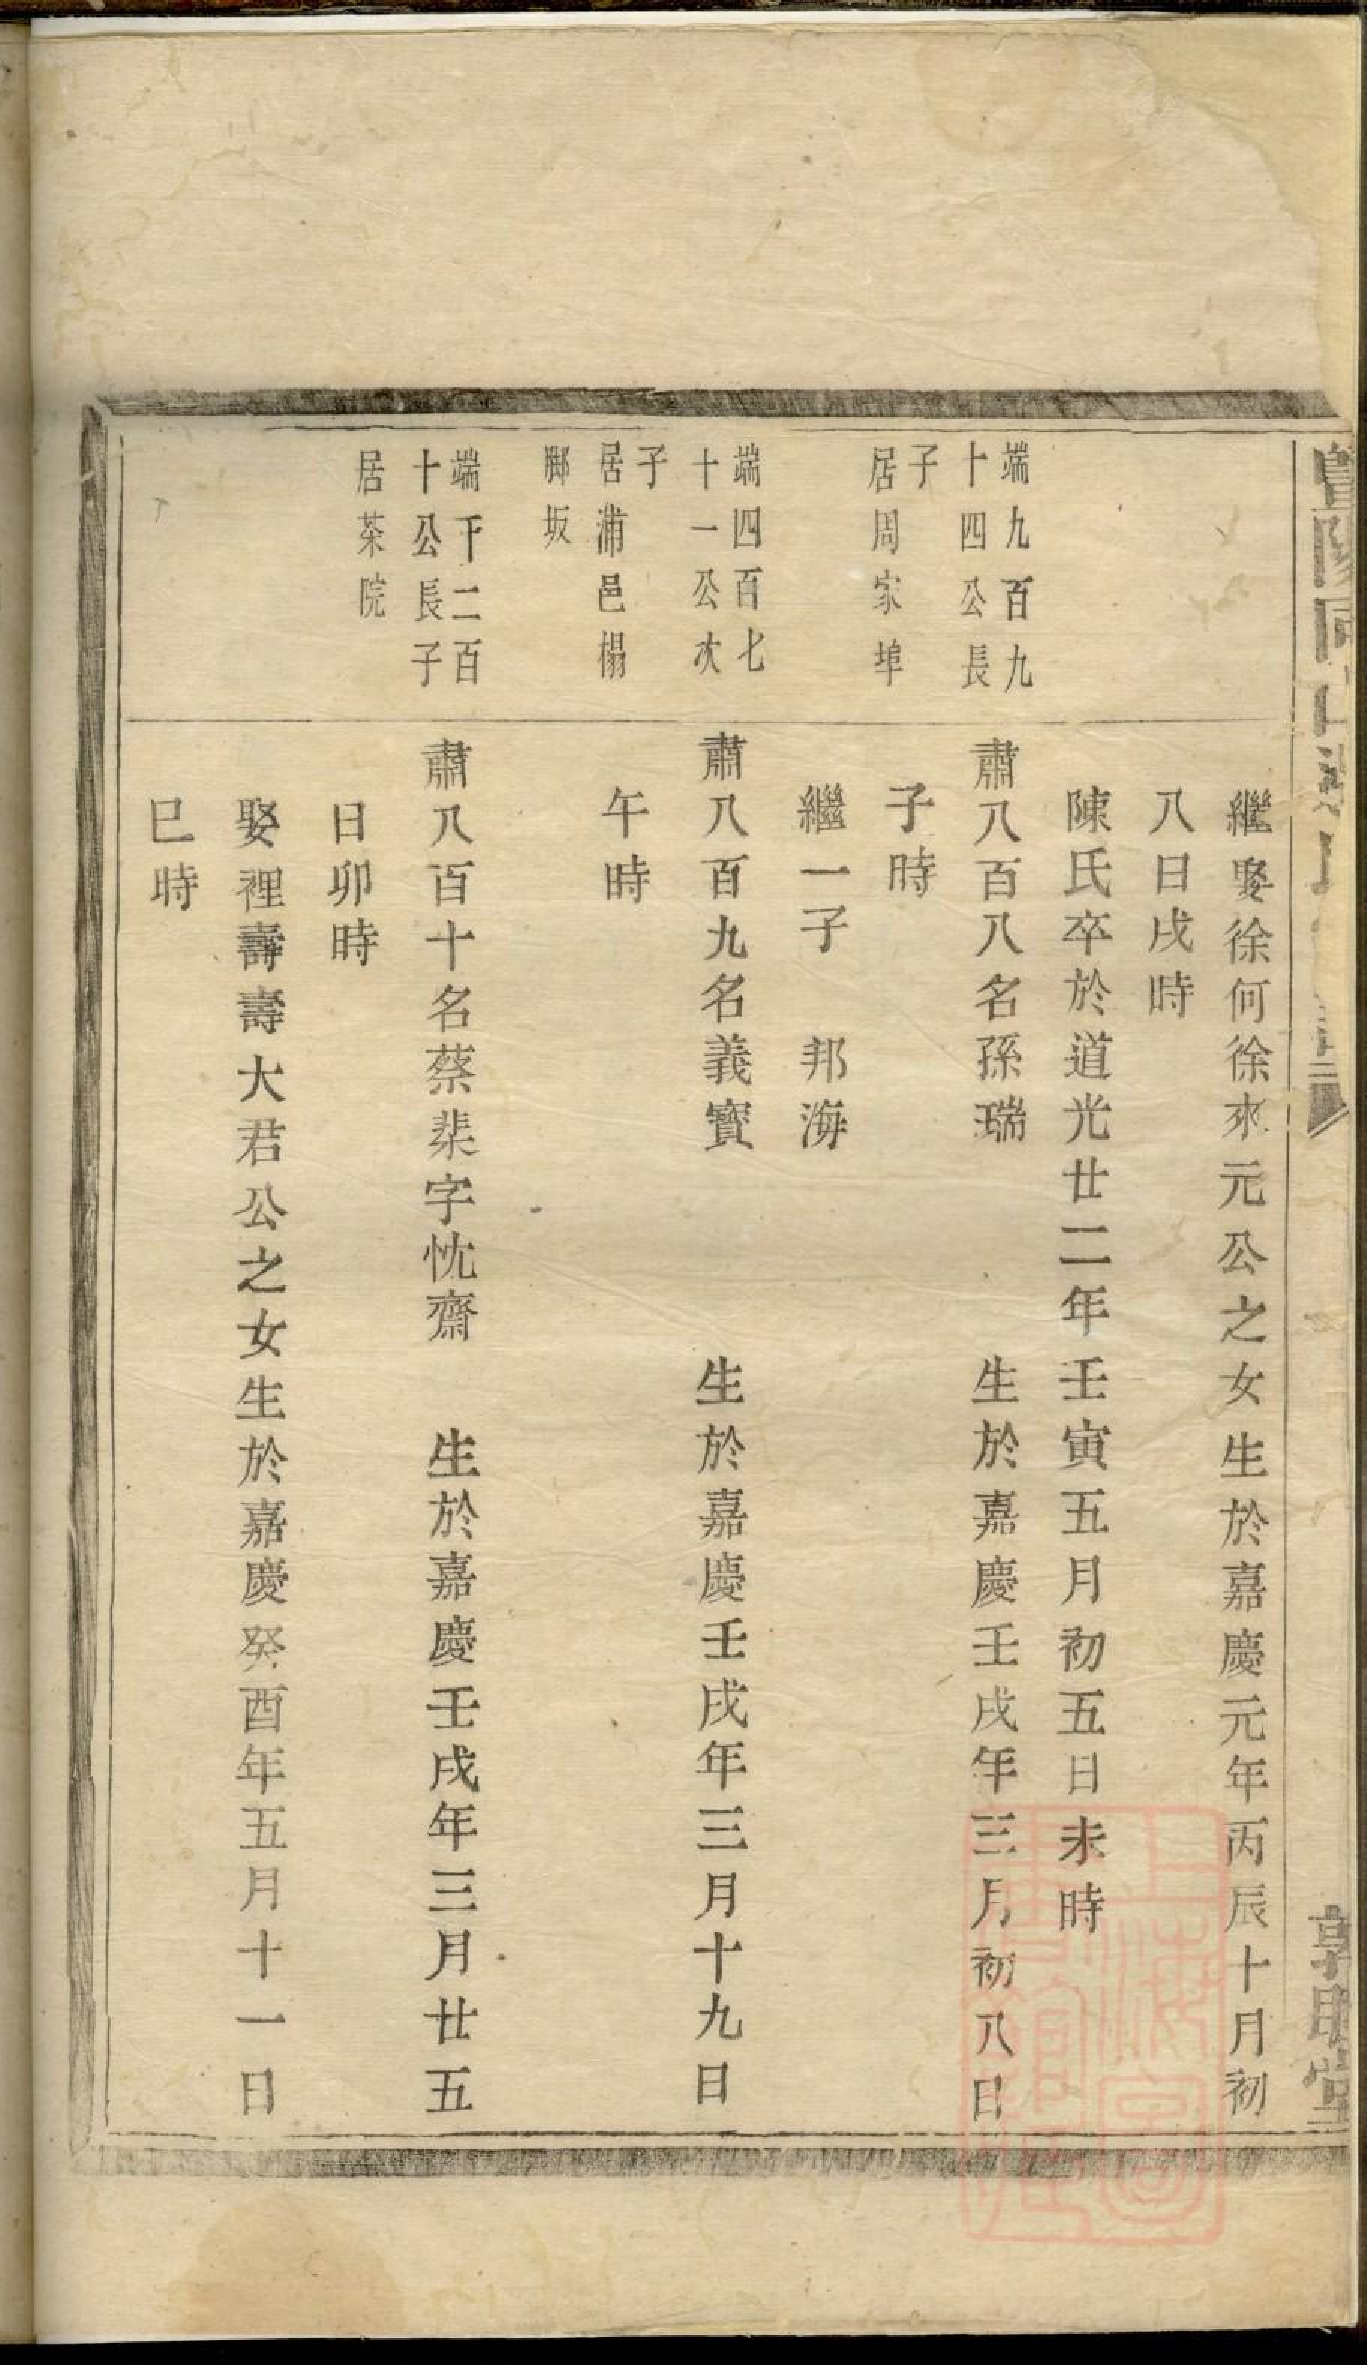 繼娶徐何徐來元公之女生於嘉慶元年丙辰十月初
八日戌時
陳氏卒於道光廿二年壬寅五月初五日未時
端九百九
十四公長
子
居周家埠
肅八百八名孫瑞　生於嘉慶壬戌年三月初八日
子時
繼一子　邦海
端四百七
十一公次
子
居浦邑楊
腳坂
肅八百九名義寶　生於嘉慶壬戌年三月十九日
午時
端千二百
十公長子
居茶院
肅八百十名蔡棐字忱齋　生於嘉慶壬戌年三月廿五
日卯時
娶裡壽壽大君公之女生於嘉慶癸酉年五月十一日
巳時
敦睦堂
上海圖書館藏